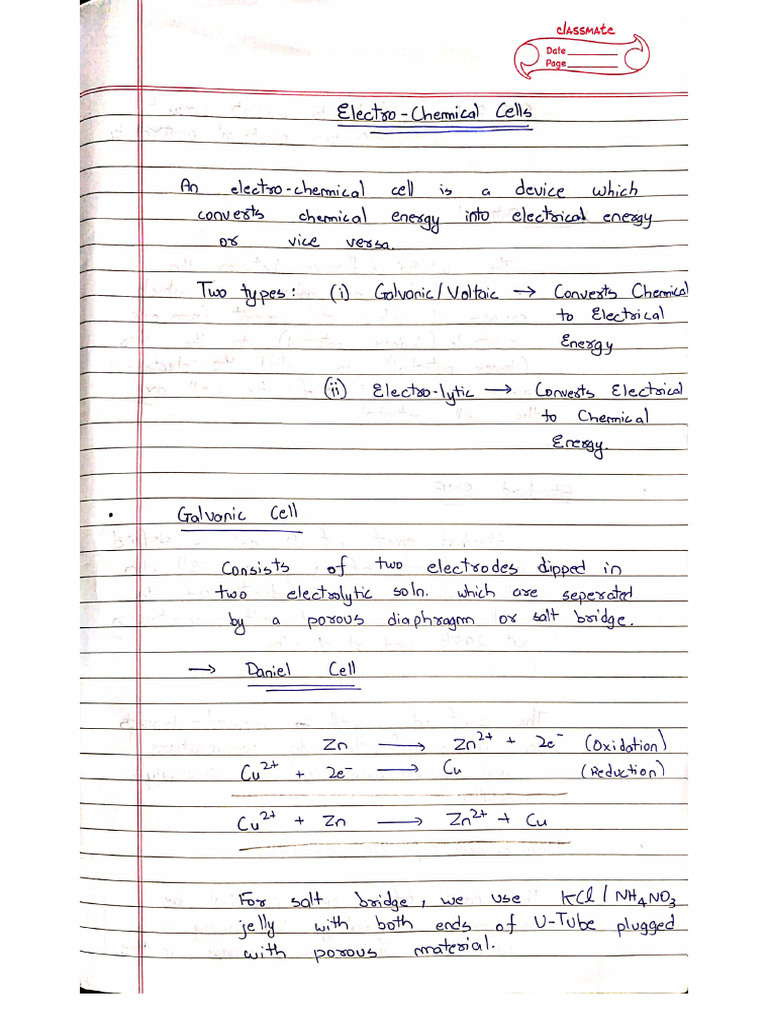 classmate
Date
Page
Electro-Chemical Cells
An electro-chemical cell is a device which
converts chemical energy into electrical energy
or vice versa.
Two types: (i) Galvanic/Voltaic → Converts Chemical
to Electrical
Energy
(ii) Electro-lytic → Converts Electrical
to Chemical
Energy.
• Galvanic Cell
Consists of two electrodes dipped in
two electrolytic soln. which are seperated
by a porous diaphragm or salt bridge.
→ Daniel Cell
Zn → Zn²⁺ + 2e⁻ (Oxidation)
Cu²⁺ + 2e⁻ → Cu (Reduction)
Cu²⁺ + Zn → Zn²⁺ + Cu
For salt bridge, we use KCl/NH₄NO₃
jelly with both ends of U-Tube plugged
with porous material.